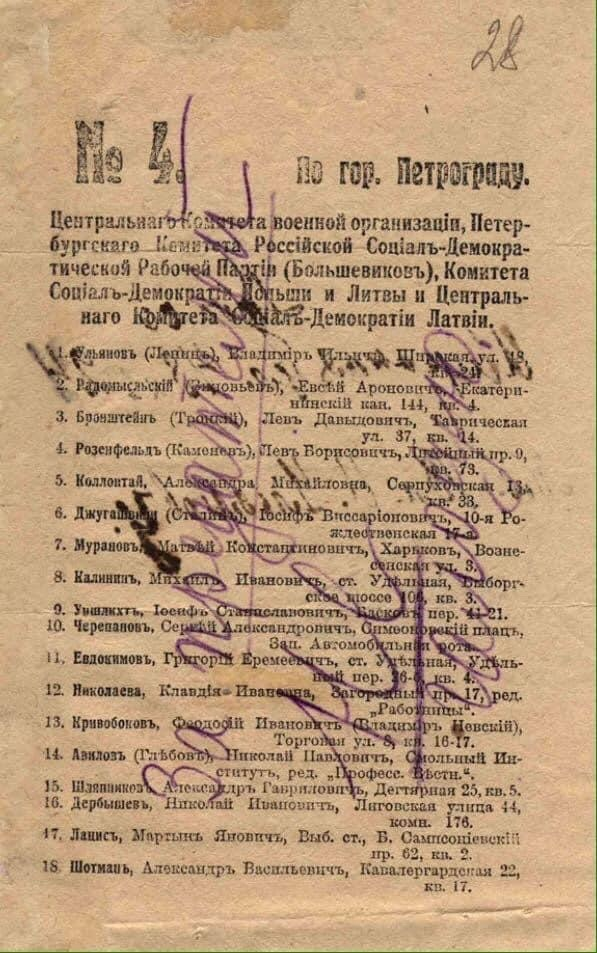 28
№ 4.
По гор. Петрограду.
Центральнаго Комитета военной организаціи, Петер-
бургскаго Комитета Россійской Соціалъ-Демокра-
тической Рабочей Партіи (Большевиковъ), Комитета
Соціалъ-Демократіи Польши и Литвы и Централь-
наго Комитета Соціалъ-Демократіи Латвіи.
1. Ульяновъ (Ленинъ), Владиміръ Ильичъ, Широкая ул. 48,
кв. 24.
2. Радомысльскій (Зиновьевъ), Евсѣй Ароновичъ, Екатери-
нинскій кан. 144, кв. 4.
3. Бронштейнъ (Троцкій), Левъ Давыдовичъ, Таврическая
ул. 37, кв. 14.
4. Розенфельдъ (Каменевъ), Левъ Борисовичъ, Литейный пр. 9,
кв. 73.
5. Коллонтай, Александра Михайловна, Серпуховская 13,
кв. 33.
6. Джугашвили (Сталинъ), Іосифъ Виссаріоновичъ, 10-я Ро-
ждественская 17-а.
7. Мурановъ, Матвѣй Константиновичъ, Харьковъ, Возне-
сенская ул. 3.
8. Калининъ, Михаилъ Ивановичъ, ст. Удѣльная, Выборг-
ское шоссе 106, кв. 3.
9. Уншлихтъ, Іосифъ Станиславовичъ, Басковъ пер. 41-21.
10. Черепановъ, Сергѣй Александровичъ, Симеоновскій плацъ,
Зап. Автомобильная рота.
11. Евдокимовъ, Григорій Еремеевичъ, ст. Удѣльная, Удѣль-
ный пер. 26-6, кв. 4.
12. Николаева, Клавдія Ивановна, Загородный пр. 17, ред.
„Работницы“.
13. Кривобоковъ, Феодосій Ивановичъ (Владиміръ Невскій),
Торговая ул. 8, кв. 16-17.
14. Авиловъ (Глѣбовъ), Николай Павловичъ, Смольный Ин-
ститутъ, ред. „Професс. Вѣстн.“.
15. Шляпниковъ, Александръ Гавриловичъ, Дегтярная 25, кв. 5.
16. Дербышевъ, Николай Ивановичъ, Лиговская улица 44,
комн. 176.
17. Лацисъ, Мартынъ Яновичъ, Выб. ст., Б. Сампсоніевскій
пр. 62, кв. 2.
18. Шотманъ, Александръ Васильевичъ, Кавалергардская 22,
кв. 17.
За